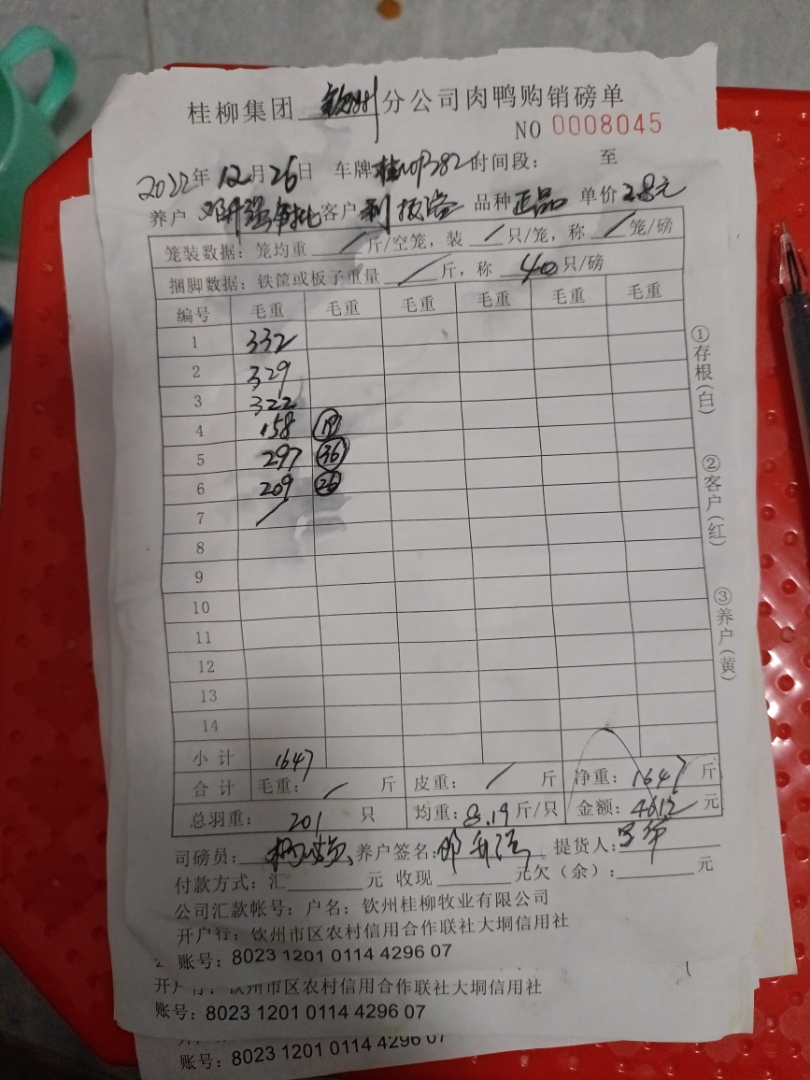 桂柳集团 钦州 分公司肉鸭购销磅单
NO 0008045
2022年 12月 26日 车牌 时间段: 至
养户 客户 品种 正品 单价 2.8元
笼装数据: 笼均重 / 斤/空笼, 装 / 只/笼, 称 / 笼/磅
捆脚数据: 铁筐或板子重量 / 斤, 称 40 只/磅
编号 毛重 毛重 毛重 毛重 毛重 毛重
1 332
2 329
3 322
4 158
5 297 36
6 209 26
7 /
8
9
10
11
12
13
14
小计 1647
合计 毛重: / 斤 皮重: / 斤 净重: 1647 斤
总羽重: 201 只 均重: 8.19 斤/只 金额: 4612 元
司磅员: 养户签名: 提货人:
付款方式: 汇 元 收现 元欠(余): 元
公司汇款帐号: 户名: 钦州桂柳牧业有限公司
开户行: 钦州市区农村信用合作联社大垌信用社
账号: 8023 1201 0114 4296 07
①存根(白)
②客户(红)
③养户(黄)
开户行: 钦州市区农村信用合作联社大垌信用社
账号: 8023 1201 0114 4296 07
账号: 8023 1201 0114 4296 07